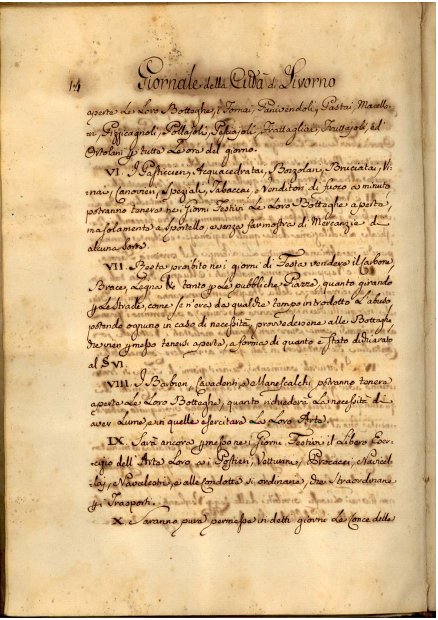 14 Giornale della Città di Livorno
aperte Le Loro Botteghe, i Fornai, Panivendoli, Pastai, Macella-
ri, Pizzicagnoli, Pollajoli, Pesciajoli, Trattagliai, Fruttajoli, ed
Ortolani p tutte Le ore del giorno.
VI. I Pasticcieri, Acquacedratai, Borzolari, Bruciatai, Vi-
nai, Canovieri, Speziali, Tabaccai, e Venditori di fuoco a minuto
potranno tenere nei Giorni Festivi Le Loro Botteghe aperte,
ma solamente a sportello, e senza far mostra di Mercanzie di
alcuna Sorte.
VII. Resta proibito nei giorni di Festa vendere il Carbone,
Brace, Legna & tanto p Le pubbliche Piazze, quanto girando
p Le Strade, come se n'era da qualche tempo introdotto L'abuso
potendo ognuno in caso di necessità, provvedersene alle Botteghe,
che vien pmesso tenersi aperte, a forma di quanto è stato dichiarato
al § VI.
VIII. I Barbieri, Cavadenti, e Manescalchi potranno tenere
aperte Le Loro Botteghe, quanto richiederà La necessità di
aver Lume, e in quelle esercitare La Loro Arte.
IX. Sarà ancora pmesso nei Giorni Festivi il Libero Eser-
cizio dell'Arte Loro, ai Postieri, Vetturini, Procacci, Navicel-
laj, e Navalestri, e alle Condotte sì ordinarie, che Straordinarie
p Trasporti.
X. Saranno pure permesse in detti giorni Le Conce delle